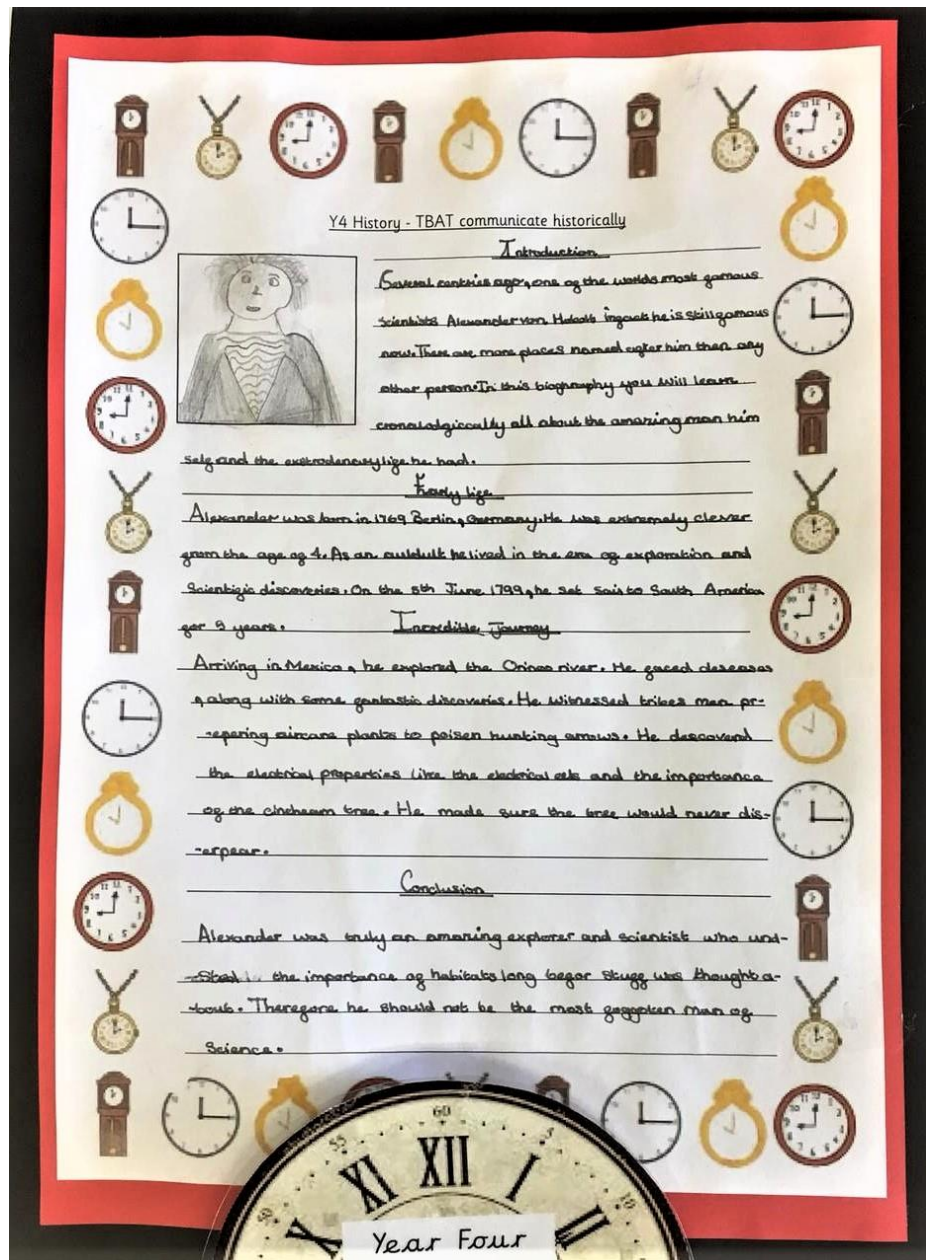 Y4 History - TBAT communicate historically
Introduction
Several centries ago, one of the worlds most famous
scientists Alexander von infact he is still famous
now. There are more places named after him then any
other person. In this biography you will learn
all about the amazing man him
self and the life he had.
Early life
Alexander was born in 1769 Berlin, Germany. He was extremely clever
from the age of 4. As an he lived in the era of exploration and
Scientific discoveries. On the 5th June 1799, he set to South America
for 5 years.
Incredible Journey
Arriving in Mexico, he explored the river. He faced deseases
, along with some fantastic discoveries. He witnessed tribes men pr-
-epering plants to poisen hunting arrows. He
the electrical properties like the electrical eels and the importance
of the tree. He made sure the tree would never dis-
-erpear.
Conclusion
Alexander was truly an amazing explorer and scientist who und-
the importance of habitats long befor stuff was thought a-
-bout. Therefore he should not be the most man of
Science.
60
55
5
50
10
X
XI
XII
I
II
Year Four